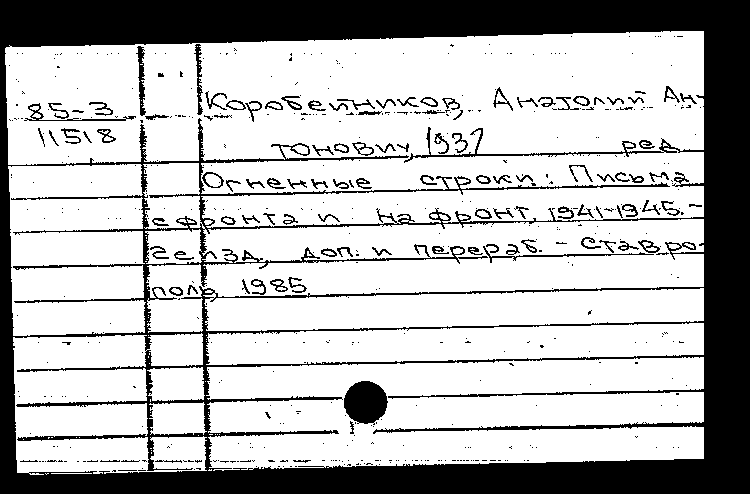 85-3
11518
Коробейников, Анатолий Ан-
тонович, 1937 ред.
Огненные строки: Письма
с фронта и на фронт, 1941-1945. -
2е изд., доп. и перераб. - Ставро-
поль, 1985